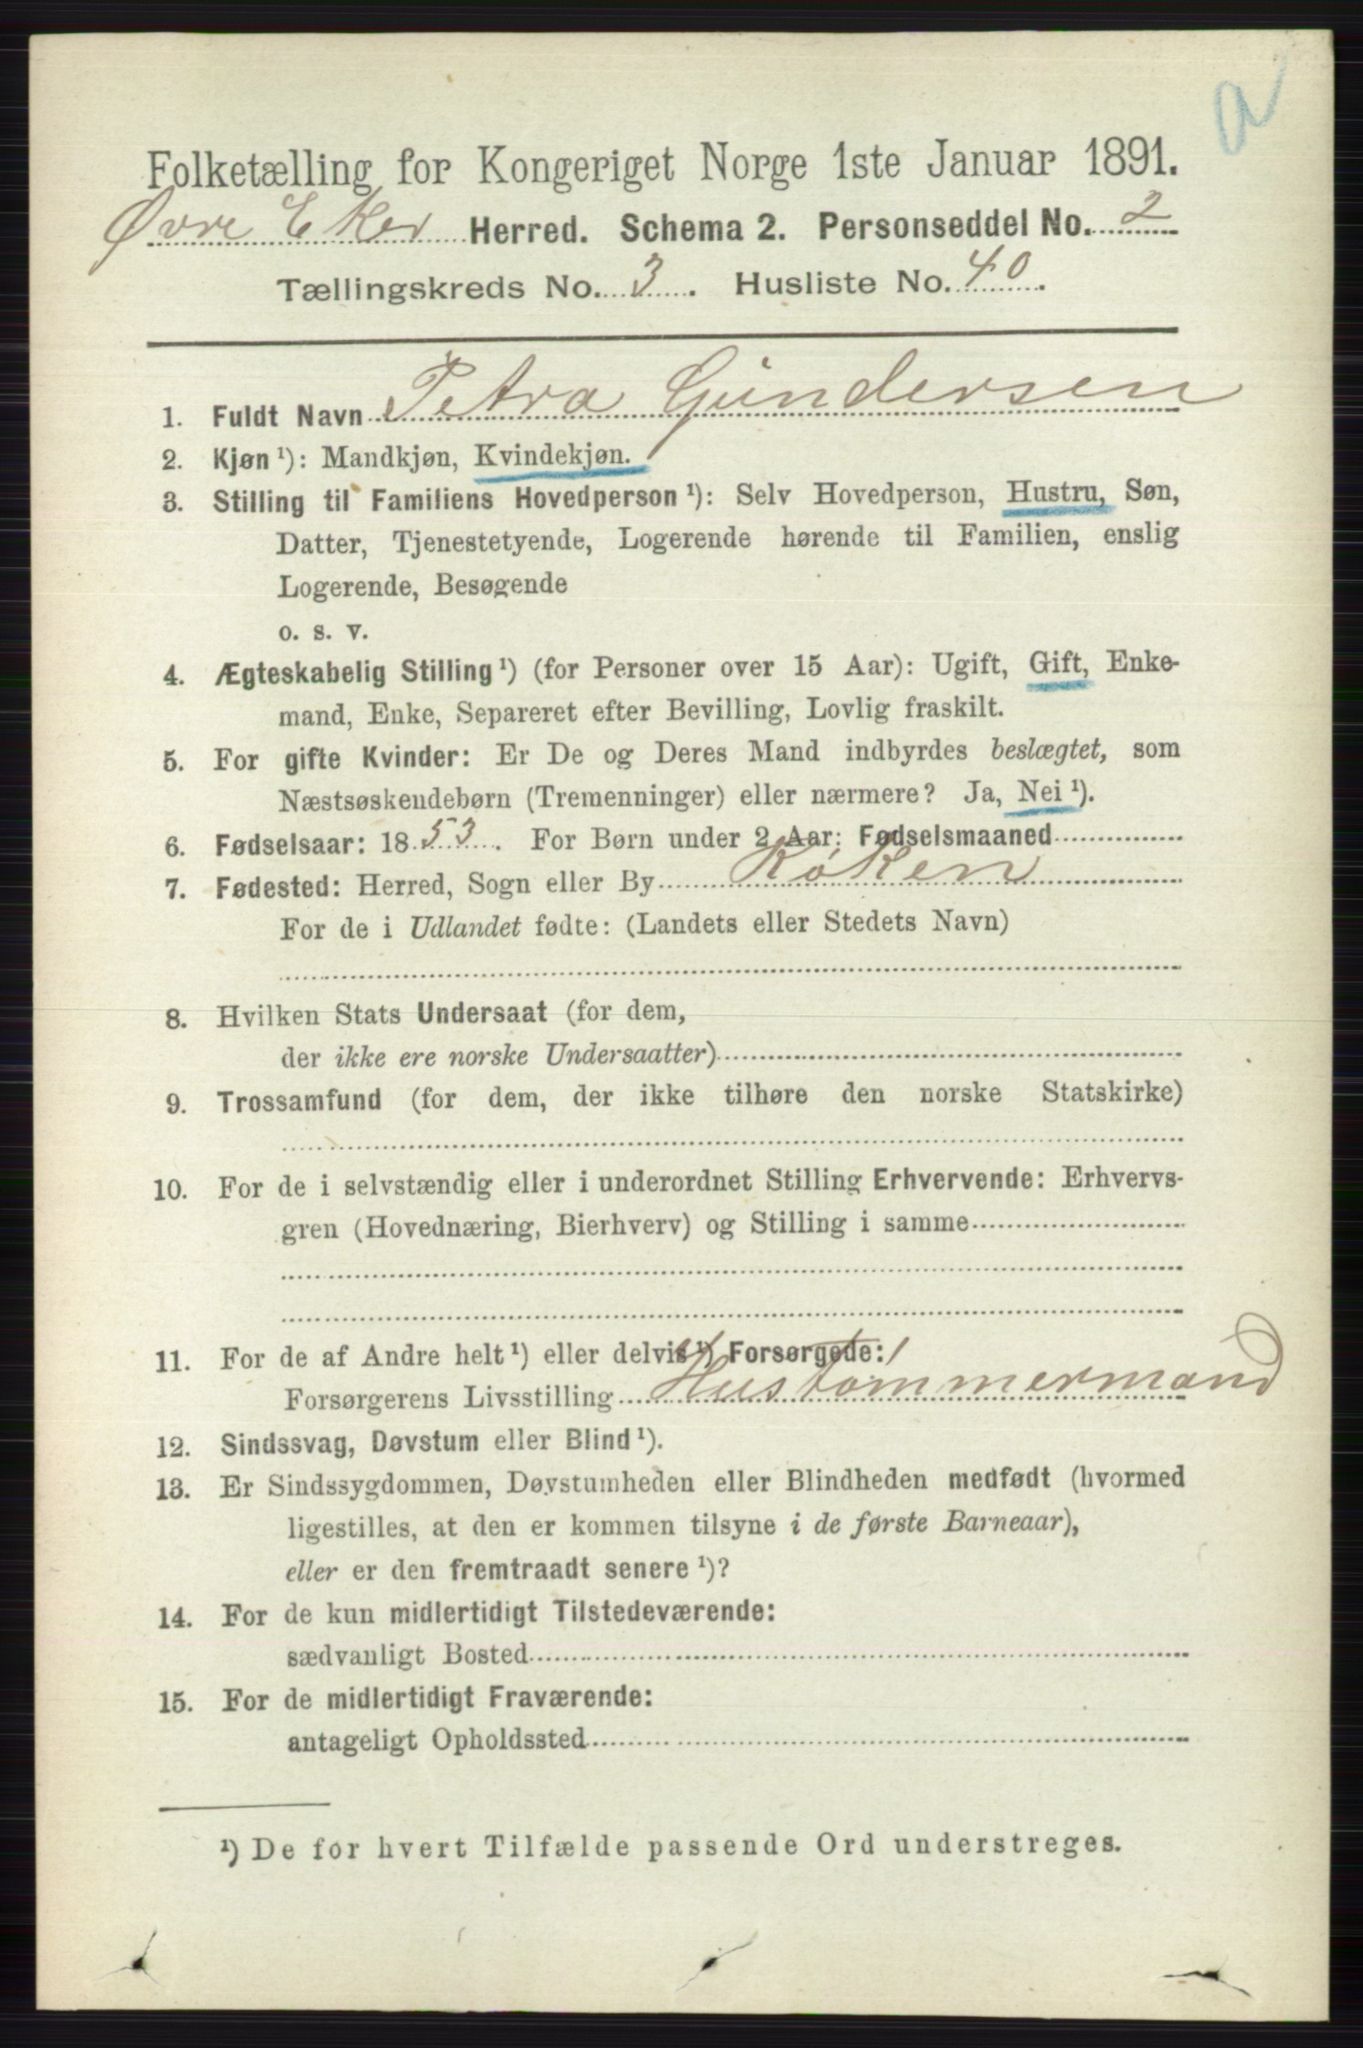 a
Folketælling for Kongeriget Norge 1ste Januar 1891.
Øvre Eker Herred. Schema 2. Personseddel No. 2
Tællingskreds No. 3. Husliste No. 40.
1. Fuldt Navn Petra Gundersen
2. Kjøn ¹): Mandkjøn, Kvindekjøn.
3. Stilling til Familiens Hovedperson ¹): Selv Hovedperson, Hustru, Søn,
Datter, Tjenestetyende, Logerende hørende til Familien, enslig
Logerende, Besøgende
o. s. v.
4. Ægteskabelig Stilling ¹) (for Personer over 15 Aar): Ugift, Gift, Enke-
mand, Enke, Separeret efter Bevilling, Lovlig fraskilt.
5. For gifte Kvinder: Er De og Deres Mand indbyrdes beslægtet, som
Næstsøskendebørn (Tremenninger) eller nærmere? Ja, Nei ¹).
6. Fødselsaar: 1853. For Børn under 2 Aar: Fødselsmaaned
7. Fødested: Herred, Sogn eller By Røken
For de i Udlandet fødte: (Landets eller Stedets Navn)
8. Hvilken Stats Undersaat (for dem,
der ikke ere norske Undersaatter)
9. Trossamfund (for dem, der ikke tilhøre den norske Statskirke)
10. For de i selvstændig eller i underordnet Stilling Erhvervende: Erhvervs-
gren (Hovednæring, Bierhverv) og Stilling i samme
11. For de af Andre helt ¹) eller delvis ¹) Forsørgede:
Forsørgerens Livsstilling Hustømmermand
12. Sindssvag, Døvstum eller Blind ¹).
13. Er Sindssygdommen, Døvstumheden eller Blindheden medfødt (hvormed
ligestilles, at den er kommen tilsyne i de første Barneaar),
eller er den fremtraadt senere ¹)?
14. For de kun midlertidigt Tilstedeværende:
sædvanligt Bosted
15. For de midlertidigt Fraværende:
antageligt Opholdssted
¹) De for hvert Tilfælde passende Ord understreges.